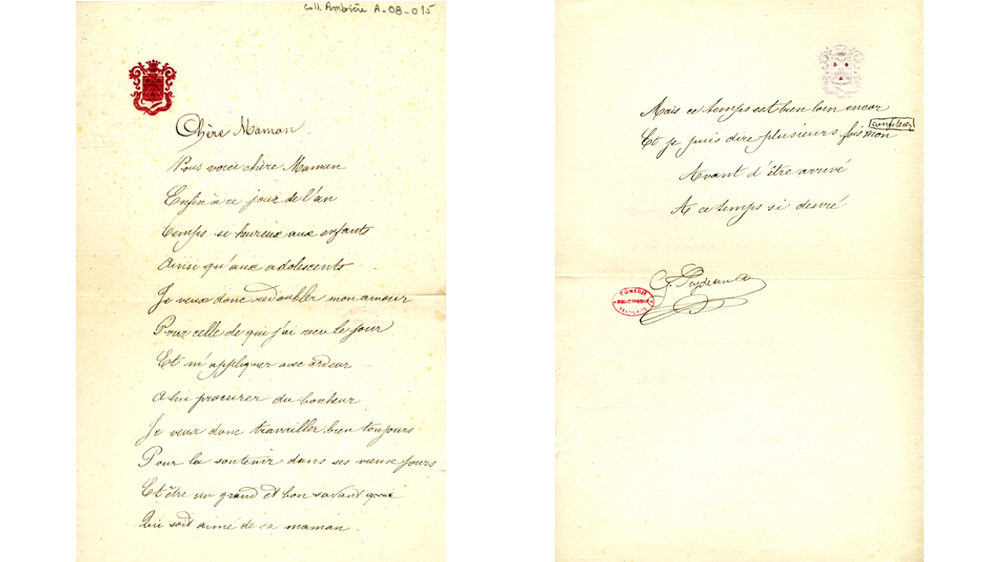 Coll. Ambrière A-08-015
Chère Maman
Nous voici chère Maman
Enfin à ce jour de l'an
temps si heureux aux enfants
Ainsi qu'aux adolescents
Je veux donc redoubler mon amour
Pour celle de qui j'ai recu le jour
Et m'appliquer avec ardeur
A lui procurer du bonheur
Je veux donc travailler bien toujours
Pour la soutenir dans ses vieux jours
Et être un grand et bon savant
Qui soit aimé de sa maman
Mais ce temps est bien loin encor
Et je puis dire plusieurs fois mon
Avant d'être arrivé
A ce temps si desiré
G. Feydeau